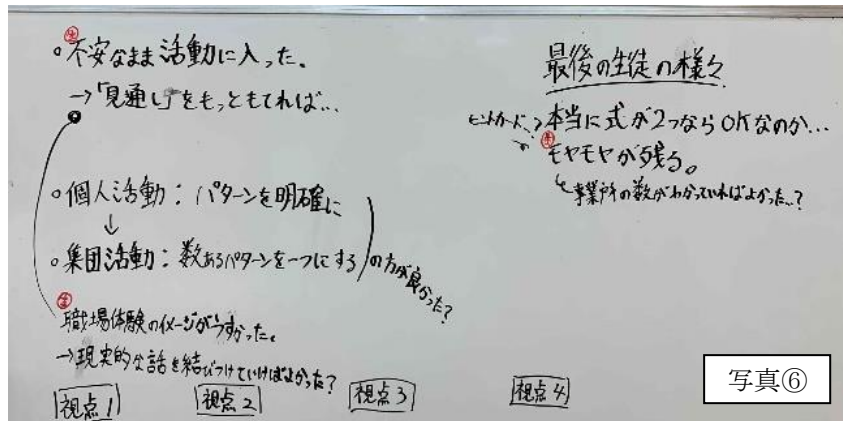 生
○不安なまま活動に入った。
→「見通し」をもっともてれば…
○個人活動：パターンを明確に
↓
○集団活動：数あるパターンを一つにする
の方が良かった？
生
職場体験のイメージがうすかった。
→現実的な話を結びつけていければよかった？
視点1
視点2
視点3
視点4
最後の生徒の様々
ヒントカード？
→本当に式が2つならOKなのか…
生
モヤモヤが残る。
事業所の数がわかっていればよかった…？
写真⑥